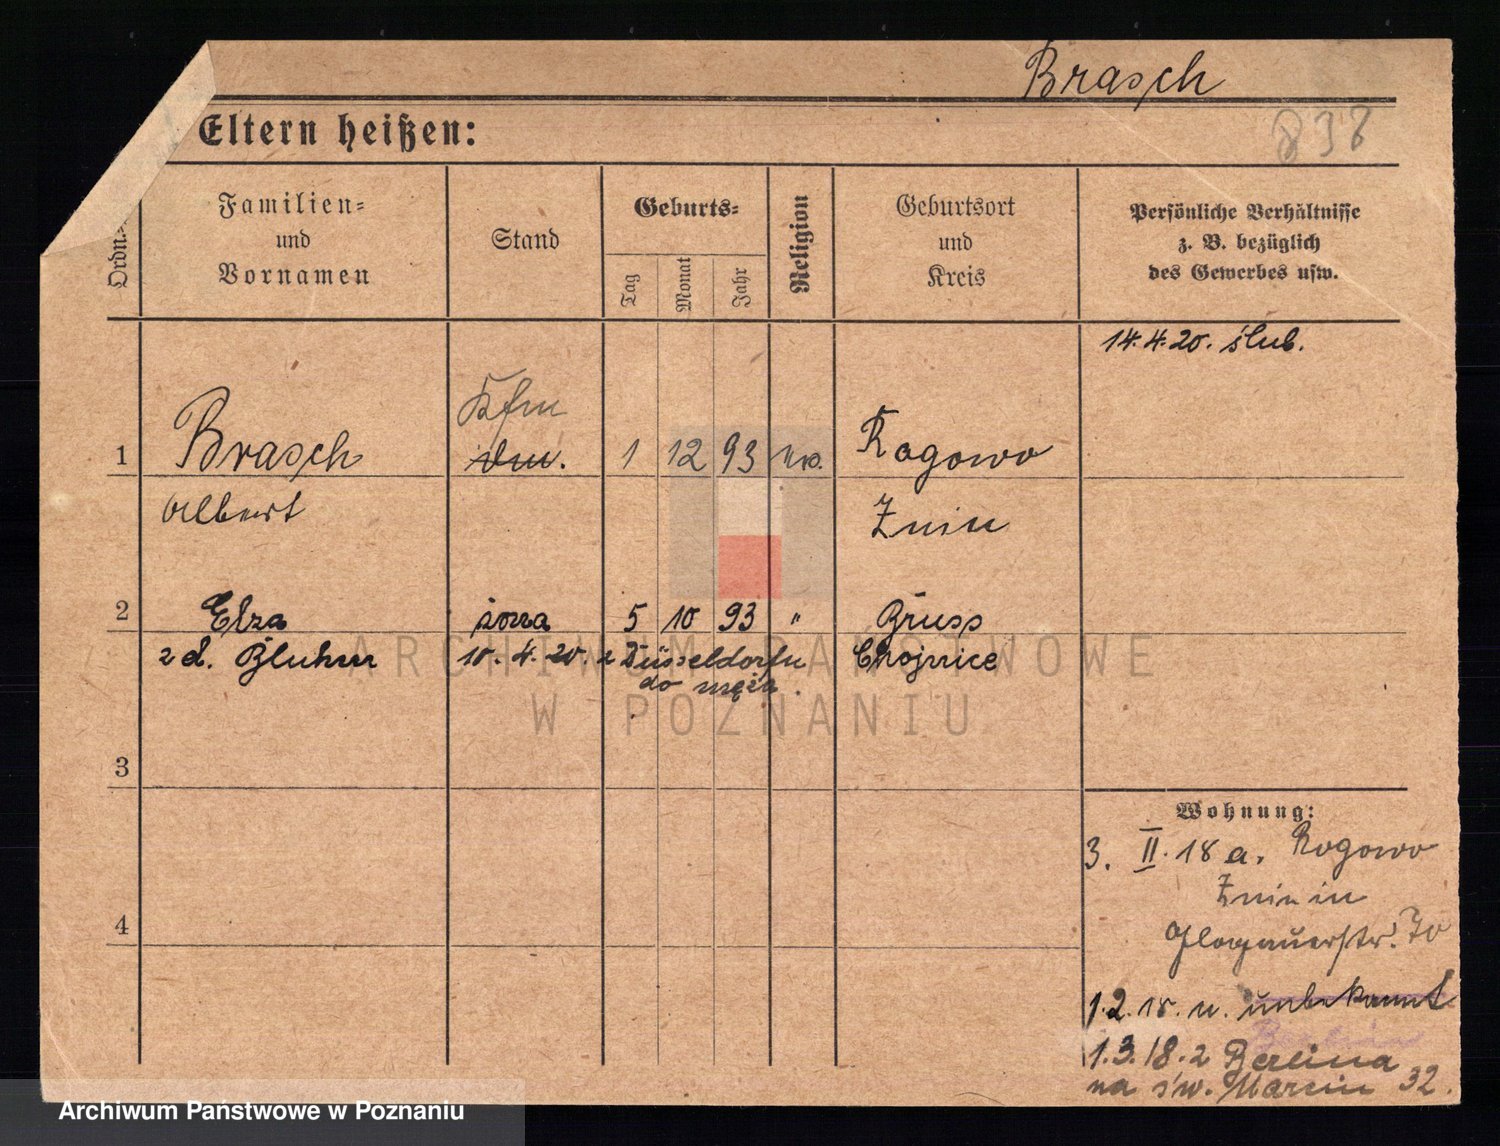 Brasch
Eltern heißen:
838
Ordn.-
Familien-
und
Vornamen
Stand
Geburts-
Tag
Monat
Jahr
Religion
Geburtsort
und
Kreis
Persönliche Verhältnisse
z. B. bezüglich
des Gewerbes usw.
14.4.20. ślub.
1 Brasch Kfm 1 12 93 Rogowo
Albert Znin
2 Elza żona 5 10 93 " Bruss
z d. Bluhm 10. 4. 20. z Düsseldorfu Chojnice
do męża.
ARCHIWUM PAŃSTWOWE
W POZNANIU
3
Wohnung:
3. II. 18 a. Rogowo
Znin in
4
Glogauerstr. 70
1.2.18. n. unbekannt
1.3.18. z Berlina
na św. Marcin 32.
Archiwum Państwowe w Poznaniu